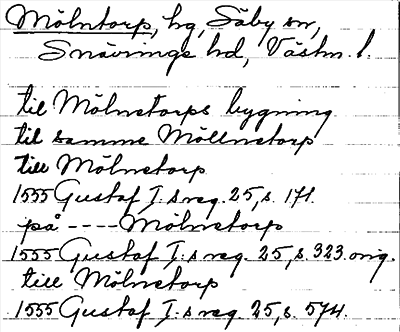 Mölntorp, hg, Säby sn,
Snävringe hd, Västm. l.
til Mölnetorps bygning
til samme Möllnetorp
till Mölnetorp
1555 Gustaf I:s reg. 25, s. 171.
på ---- Mölnetorp
1555 Gustaf I:s reg. 25, s. 323. orig.
till Mölnetorp
1555 Gustaf I:s reg. 25, s. 574.